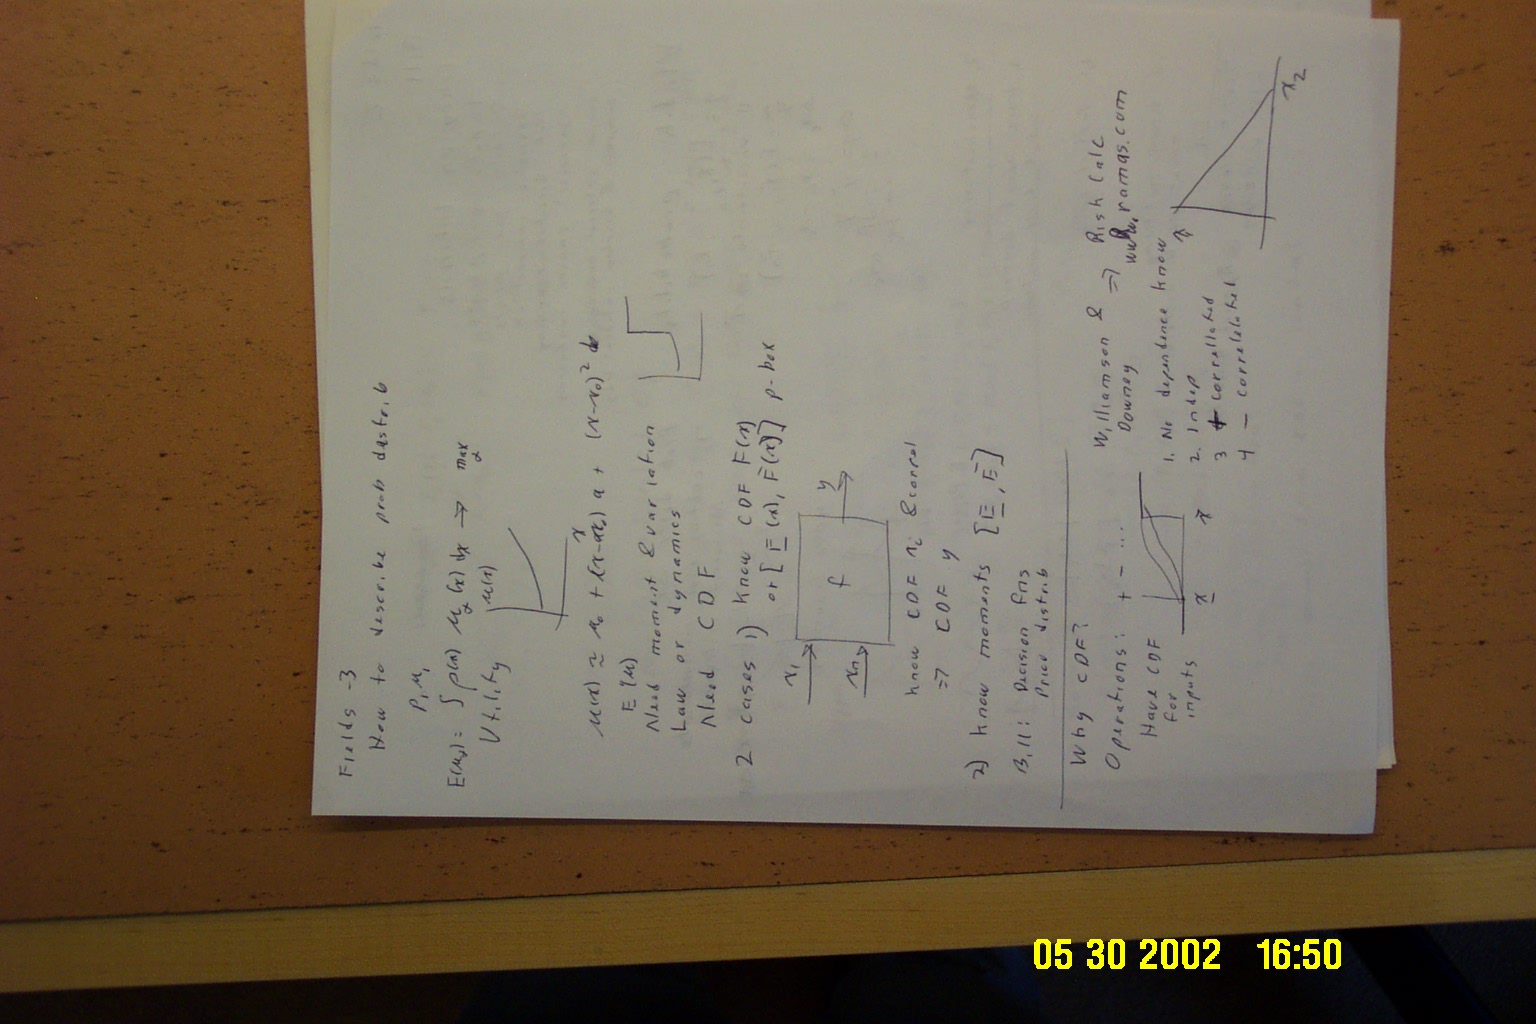 Fields -3
How to describe prob distrib
E(u_α) = ∫ρ(x) u_α(x) dx → max α
Utility
u(x)
x
E(u)
Need moment & variation
Law or dynamics
Need CDF
2 cases 1) know CDF F(x)
or [F(x), F̄(x)] p-box
x₁
xₙ
f
y
know CDF xᵢ & correl
⇒ CDF y
2) know moments [E, Ē]
Bill: Decision fns
Price distrib
Why CDF?
Operations: + - ...
Have CDF
for
inputs
x
x̄
Williamson &
Downey
⇒ Risk Calc
www.ramas.com
1. No dependence know
2. Indep
3 + correllated
4 - correlelated
x₂
05 30 2002 16:50